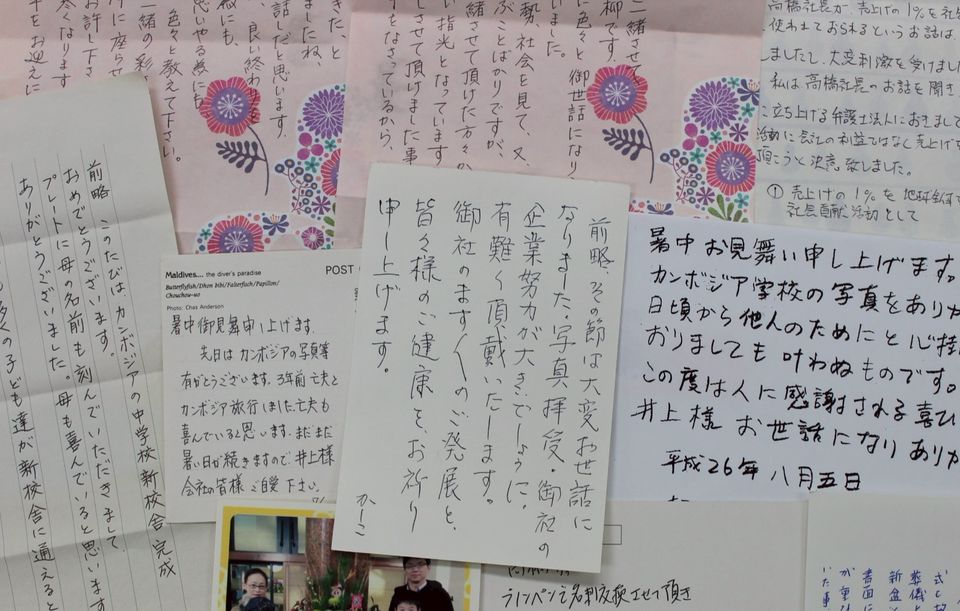 一緒させて
柳です。
に色々と御世話になり
いました。
勢、社会を見て、又、
ぶことばかりですが、
緒させて頂けた方々か
い指光となっています
しさせて頂けました事
をなさっているから、
きた、と
ましたね、
話だと思います。
良い終わ
思いやる為にも
色々と教えて下さい。
に座らせ
一緒の彩
お許し下さ
寒くなります
お迎えに
高橋社長が、売上げの1%を社会
使われておられるというお話は、
しましたて、大変刺激を受けました
私は高橋社長のお話を聞き、
立ち上げる弁護士法人におきまして
活動に会社の利益ではなく売上げを
頂こうと決意致しました。
① 売上げの1%を地球
社会貢献活動として
前略 このたびはカンボジアの中学校新校舎完成
おめでとうございます。
プレートに母の名前も刻んでいただきまして
ありがとうございました。母も喜んでいると思います
多くの子ども達が新校舎に通えると
Maldives.... the diver's paradise
POST
Butterflyfish/Dhon bibi/Falterfisch/Papillon/
Chouchou-uo
Photo: Chas Anderson
暑中御見舞申し上げます。
先日はカンボジアの写真等
有がとうございます。3年前亡夫と
カンボジア旅行しました。亡夫も
喜んでいると思います。まだまだ
暑い日が続きますので、井上様
会社の皆様ご自愛下さい。
前略、その節は大変お世話に
なりました。写真拝受・御社の
企業努力が大きいでしょうに。
有難く頂戴いたします。
御社のます〱のご発展と、
皆々様のご健康を、お祈り
申し上げます。
かしこ
暑中お見舞い申し上げます。
カンボジア学校の写真をありが
日頃から他人のためにと心掛
おりましても叶わぬものです。
この度は人に感謝される喜び
井上様 お世話になり ありが
平成26年 八月五日
ラインペンで名刺交換させて頂き